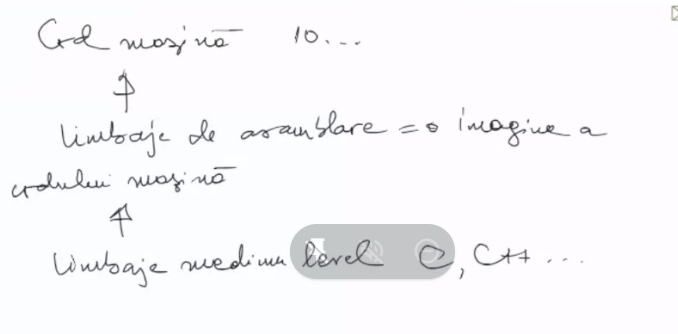 Cod mașină 10...
limbaje de asamblare = o imagine a
codului mașină
limbaje medium level C, C++ ...